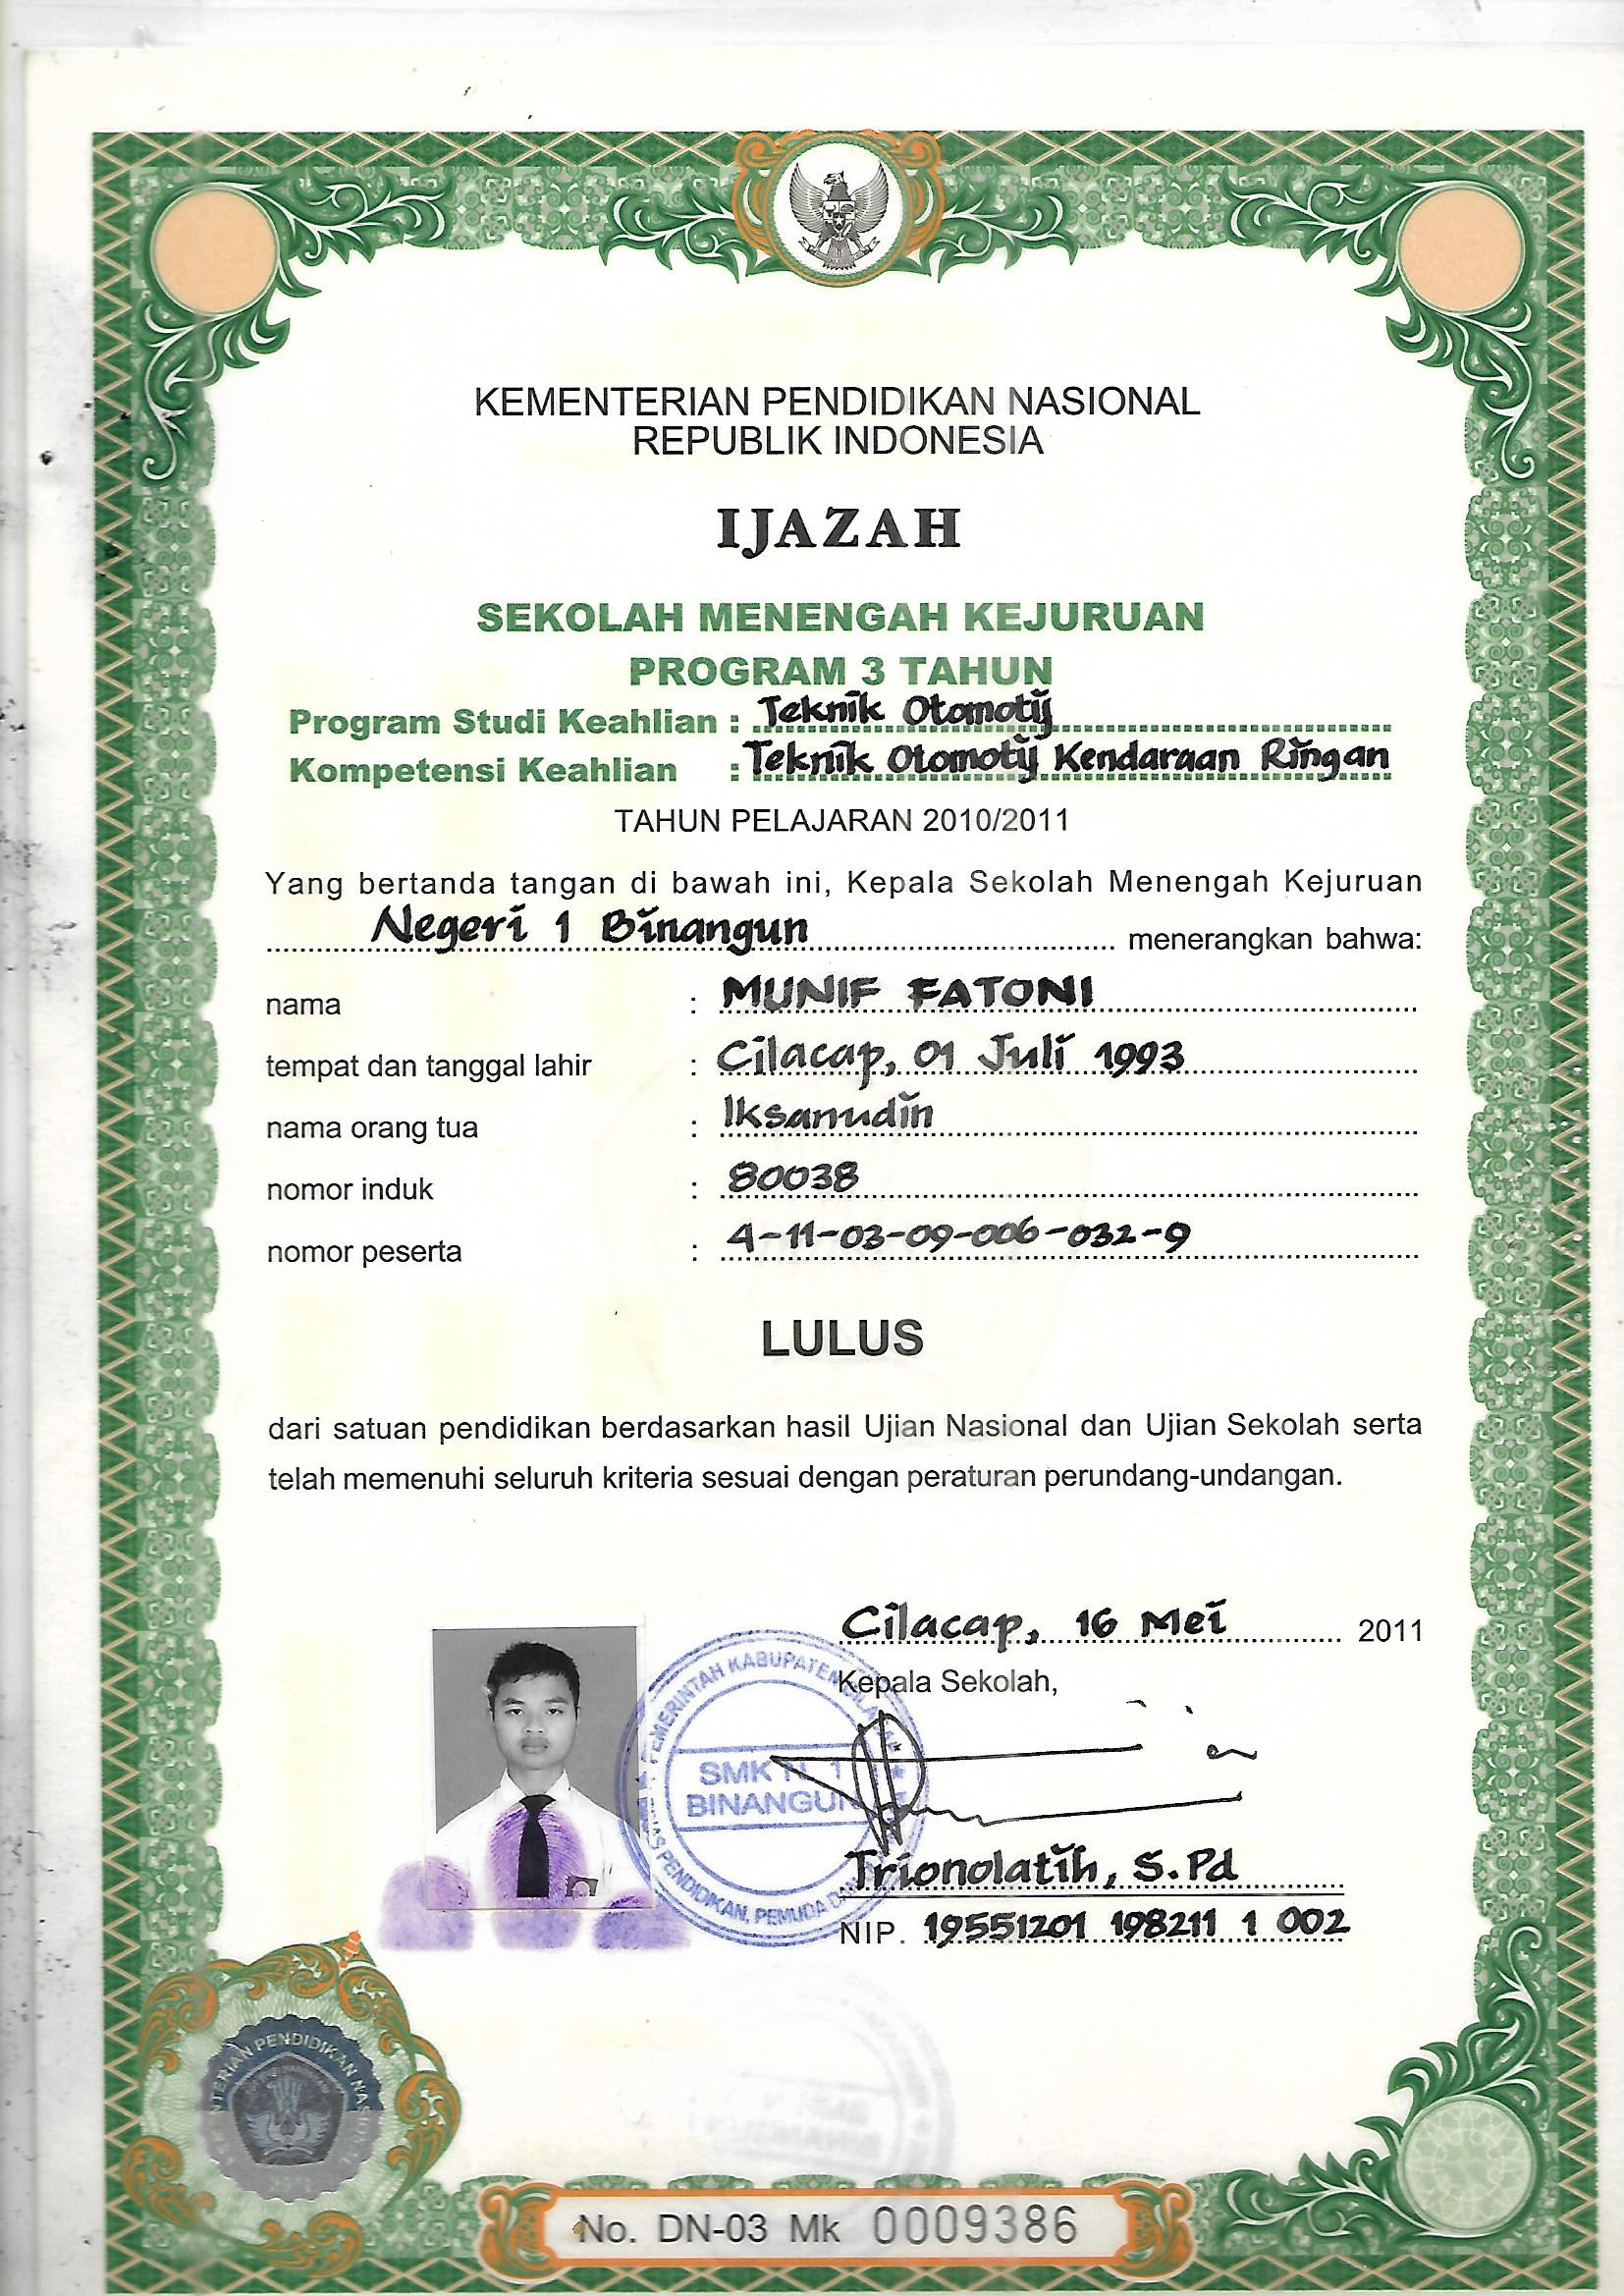 KEMENTERIAN PENDIDIKAN NASIONAL
REPUBLIK INDONESIA
IJAZAH
SEKOLAH MENENGAH KEJURUAN
PROGRAM 3 TAHUN
Program Studi Keahlian : Teknik Otomotif
Kompetensi Keahlian : Teknik Otomotif Kendaraan Ringan
TAHUN PELAJARAN 2010/2011
Yang bertanda tangan di bawah ini, Kepala Sekolah Menengah Kejuruan
Negeri 1 Binangun menerangkan bahwa:
nama : MUNIF FATONI
tempat dan tanggal lahir : Cilacap, 01 Juli 1993
nama orang tua : Iksanudin
nomor induk : 80038
nomor peserta : 4-11-03-09-006-032-9
LULUS
dari satuan pendidikan berdasarkan hasil Ujian Nasional dan Ujian Sekolah serta
telah memenuhi seluruh kriteria sesuai dengan peraturan perundang-undangan.
Cilacap, 16 Mei 2011
Kepala Sekolah,
PEMERINTAH KABUPATEN CILACAP
SMK N 1
BINANGUN
PENDIDIKAN, PEMUDA DAN
Trionolatih, S.Pd
NIP. 19551201 198211 1 002
PENDIDIKAN
No. DN-03 Mk 0009386